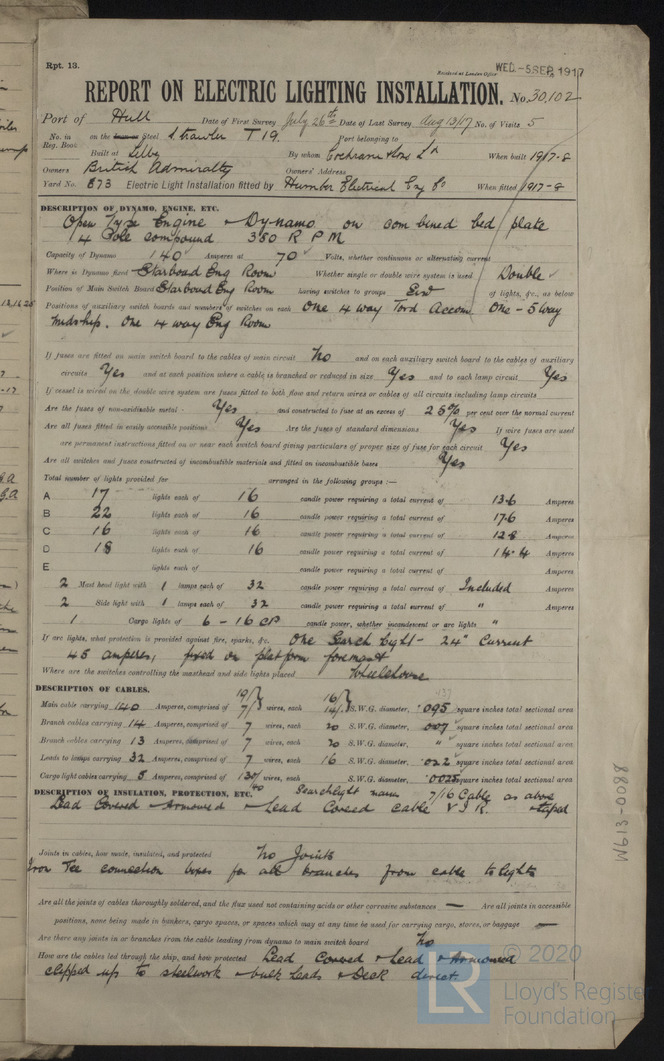 Rpt. 13.
Received at London Office WED. -5 SEP. 1917
REPORT ON ELECTRIC LIGHTING INSTALLATION. No. 30,102
Port of Hull Date of First Survey July 26th Date of Last Survey Aug 13/17 No. of Visits 5
No. in Reg. Book on the Steel S. trawler T 19. Port belonging to
Built at Selby By whom Cochrane & Sons Ld When built 1917-8
Owners British Admiralty Owners' Address
Yard No. 873 Electric Light Installation fitted by Humber Electrical Eng Co When fitted 1917-8
DESCRIPTION OF DYNAMO, ENGINE, ETC.
Open Type Engine & Dynamo on combined bed plate
4 Pole compound 350 R P M
Capacity of Dynamo 140 Amperes at 70 Volts, whether continuous or alternating current
Where is Dynamo fixed Starboard Eng Room Whether single or double wire system is used Double
Position of Main Switch Board Starboard Eng Room having switches to groups of lights, &c., as below
Positions of auxiliary switch boards and numbers of switches on each One 4 way Ford Accom One - 5 way
Midship. One 4 way Eng Room
If fuses are fitted on main switch board to the cables of main circuit No and on each auxiliary switch board to the cables of auxiliary
circuits Yes and at each position where a cable is branched or reduced in size Yes and to each lamp circuit Yes
If vessel is wired on the double wire system are fuses fitted to both flow and return wires or cables of all circuits including lamp circuits
Are the fuses of non-oxidizable metal Yes and constructed to fuse at an excess of 25% per cent over the normal current
Are all fuses fitted in easily accessible positions Yes Are the fuses of standard dimensions Yes If wire fuses are used
are permanent instructions fitted on or near each switch board giving particulars of proper size of fuse for each circuit Yes
Are all switches and fuses constructed of incombustible materials and fitted on incombustible bases Yes
Total number of lights provided for arranged in the following groups :—
A 17 lights each of 16 candle power requiring a total current of 13.6 Amperes
B 22 lights each of 16 candle power requiring a total current of 17.6 Amperes
C 16 lights each of 16 candle power requiring a total current of 12.8 Amperes
D 18 lights each of 16 candle power requiring a total current of 14.4 Amperes
E lights each of candle power requiring a total current of Amperes
2 Mast head light with 1 lamps each of 32 candle power requiring a total current of Included Amperes
2 Side light with 1 lamps each of 32 candle power requiring a total current of " Amperes
1 Cargo lights of 6 - 16 CP candle power, whether incandescent or arc lights "
If arc lights, what protection is provided against fire, sparks, &c. One Search Light - 24" Current
45 amperes, fixed on platform foremast
Where are the switches controlling the masthead and side lights placed Wheelhouse
DESCRIPTION OF CABLES.
Main cable carrying 140 Amperes, comprised of 19/7 wires, each 16/14 S.W.G. diameter, .095 square inches total sectional area
Branch cables carrying 14 Amperes, comprised of 7 wires, each 20 S.W.G. diameter, .007 square inches total sectional area
Branch cables carrying 13 Amperes, comprised of 7 wires, each 20 S.W.G. diameter, " square inches total sectional area
Leads to lamps carrying 32 Amperes, comprised of 7 wires, each 16 S.W.G. diameter, .022 square inches total sectional area
Cargo light cables carrying 5 Amperes, comprised of wires, each S.W.G. diameter, square inches total sectional area
DESCRIPTION OF INSULATION, PROTECTION, ETC. Searchlight mains 7/16 Cable as above
Lead Covered & Armoured & Lead Covered cable V.I.R. & taped
Joints in cables, how made, insulated, and protected No Joints
Iron Tee connection boxes for all branches from cable to lights
Are all the joints of cables thoroughly soldered, and the flux used not containing acids or other corrosive substances — Are all joints in accessible
positions, none being made in bunkers, cargo spaces, or spaces which may at any time be used for carrying cargo, stores, or baggage —
Are there any joints in or branches from the cable leading from dynamo to main switch board No
How are the cables led through the ship, and how protected Lead Covered & Lead & Armoured
clipped up to steelwork & bulkheads & Deck direct
W613-0088
© 2020
LR Lloyd's Register
Foundation